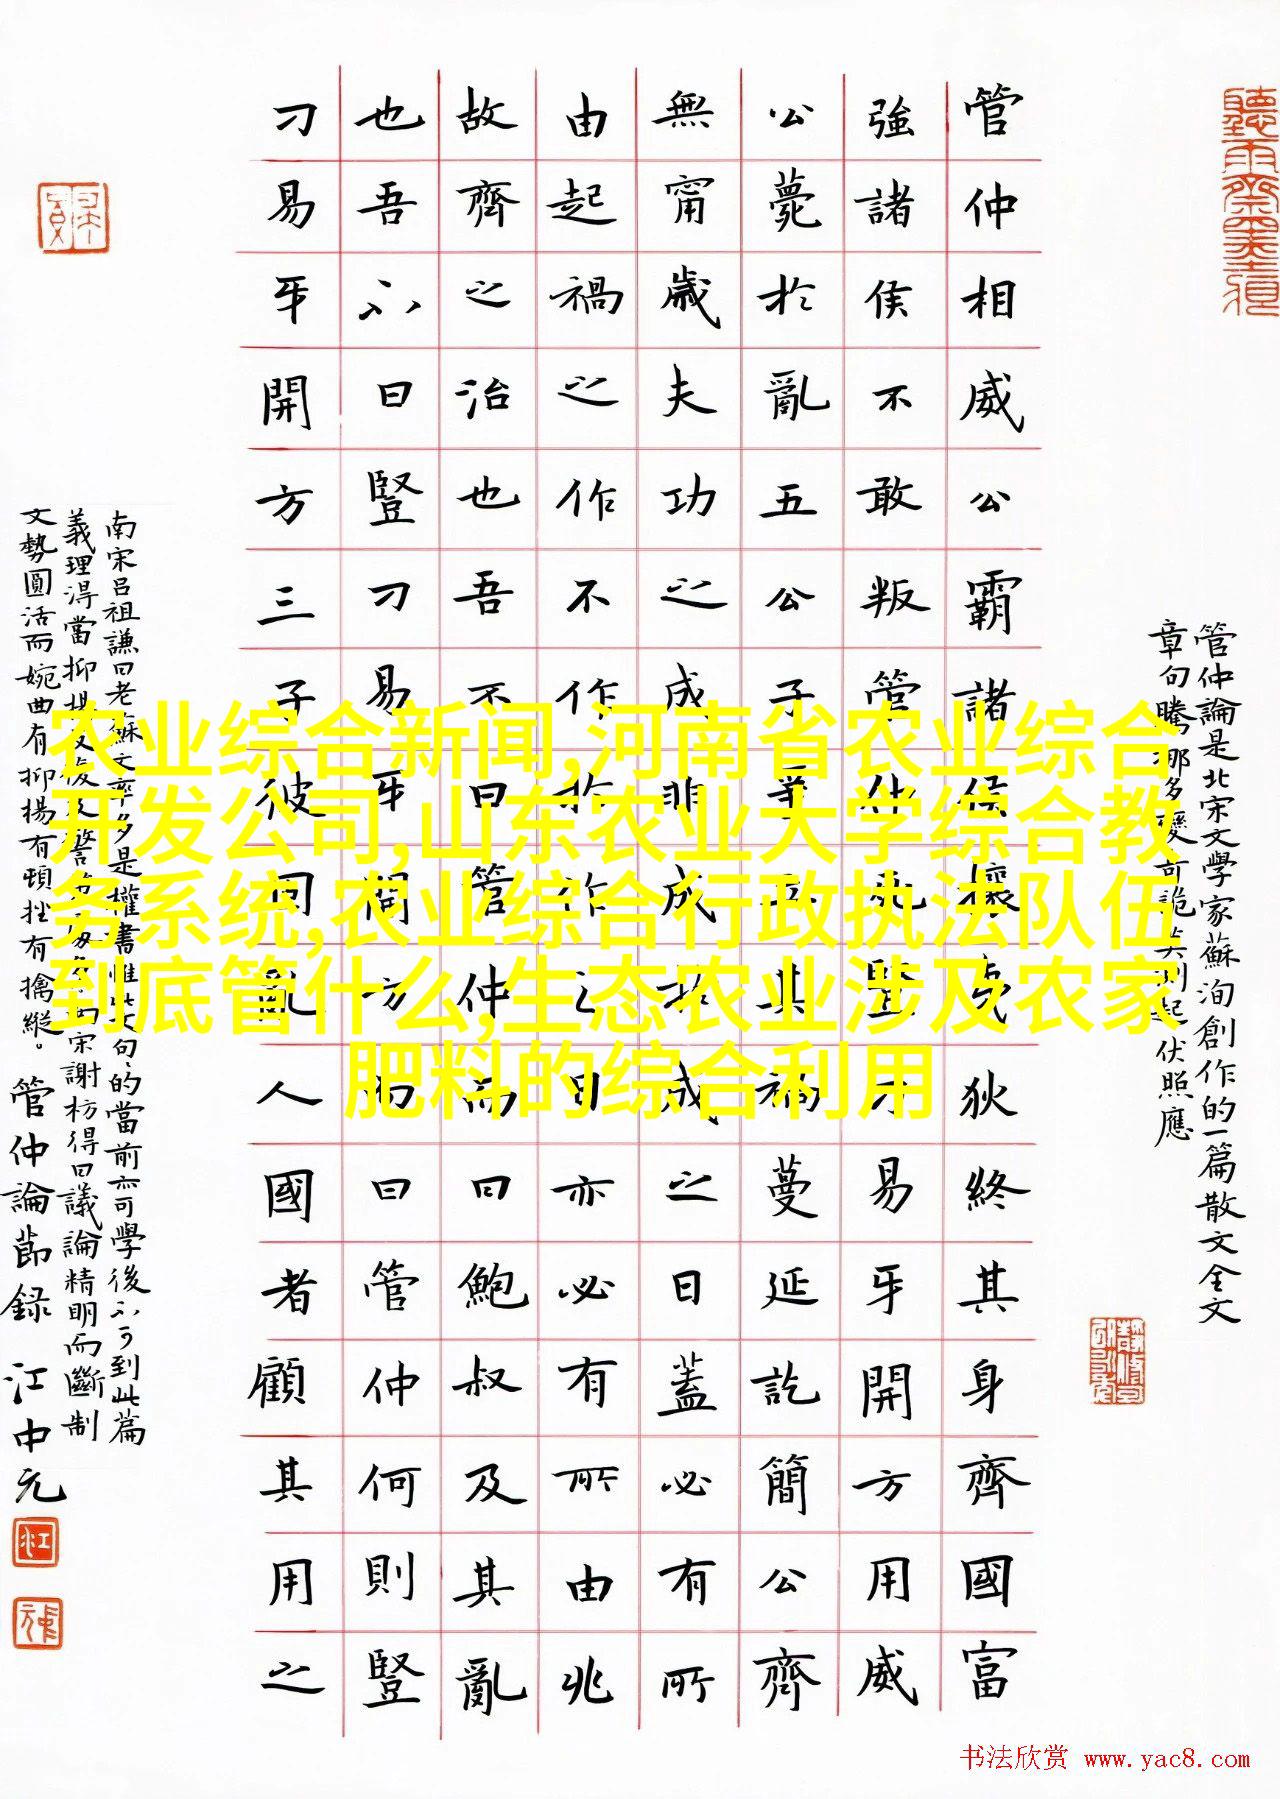 管仲論是北宋文學家蘇洵創作的一篇散文全文
章句騰挪多變奇詭莫測起伏照應
管仲相威公霸諸侯攘夷狄終其身齊國富
強諸侯不敢叛管仲死豎刁易牙開方用威
公薨於亂五公子爭立其禍蔓延訖簡公齊
無甯歲夫功之成非成於成之日蓋必有所
由起禍之作不作於作之日亦必有所由兆
故齊之治也吾不曰管仲而曰鮑叔及其亂
也吾不曰豎刁易牙開方而曰管仲何則豎
刁易牙開方三子彼固亂人國者顧其用之
南宋呂祖謙曰老蘇文率多是權書惟此文句句的當前亦可學後不可到此篇
義理淂當抑揚反復及警策處多南宋謝枋得曰議論精明而斷制
文勢圓活而婉曲有抑揚有頓挫有擒縱。管仲論節錄 江中元
农业综合新闻,河南省农业综合
开发公司,山东农业大学综合教
务系统,农业综合行政执法队伍
到底管什么,生态农业涉及农家
肥料的综合利用
书法欣赏 www.yac8.com